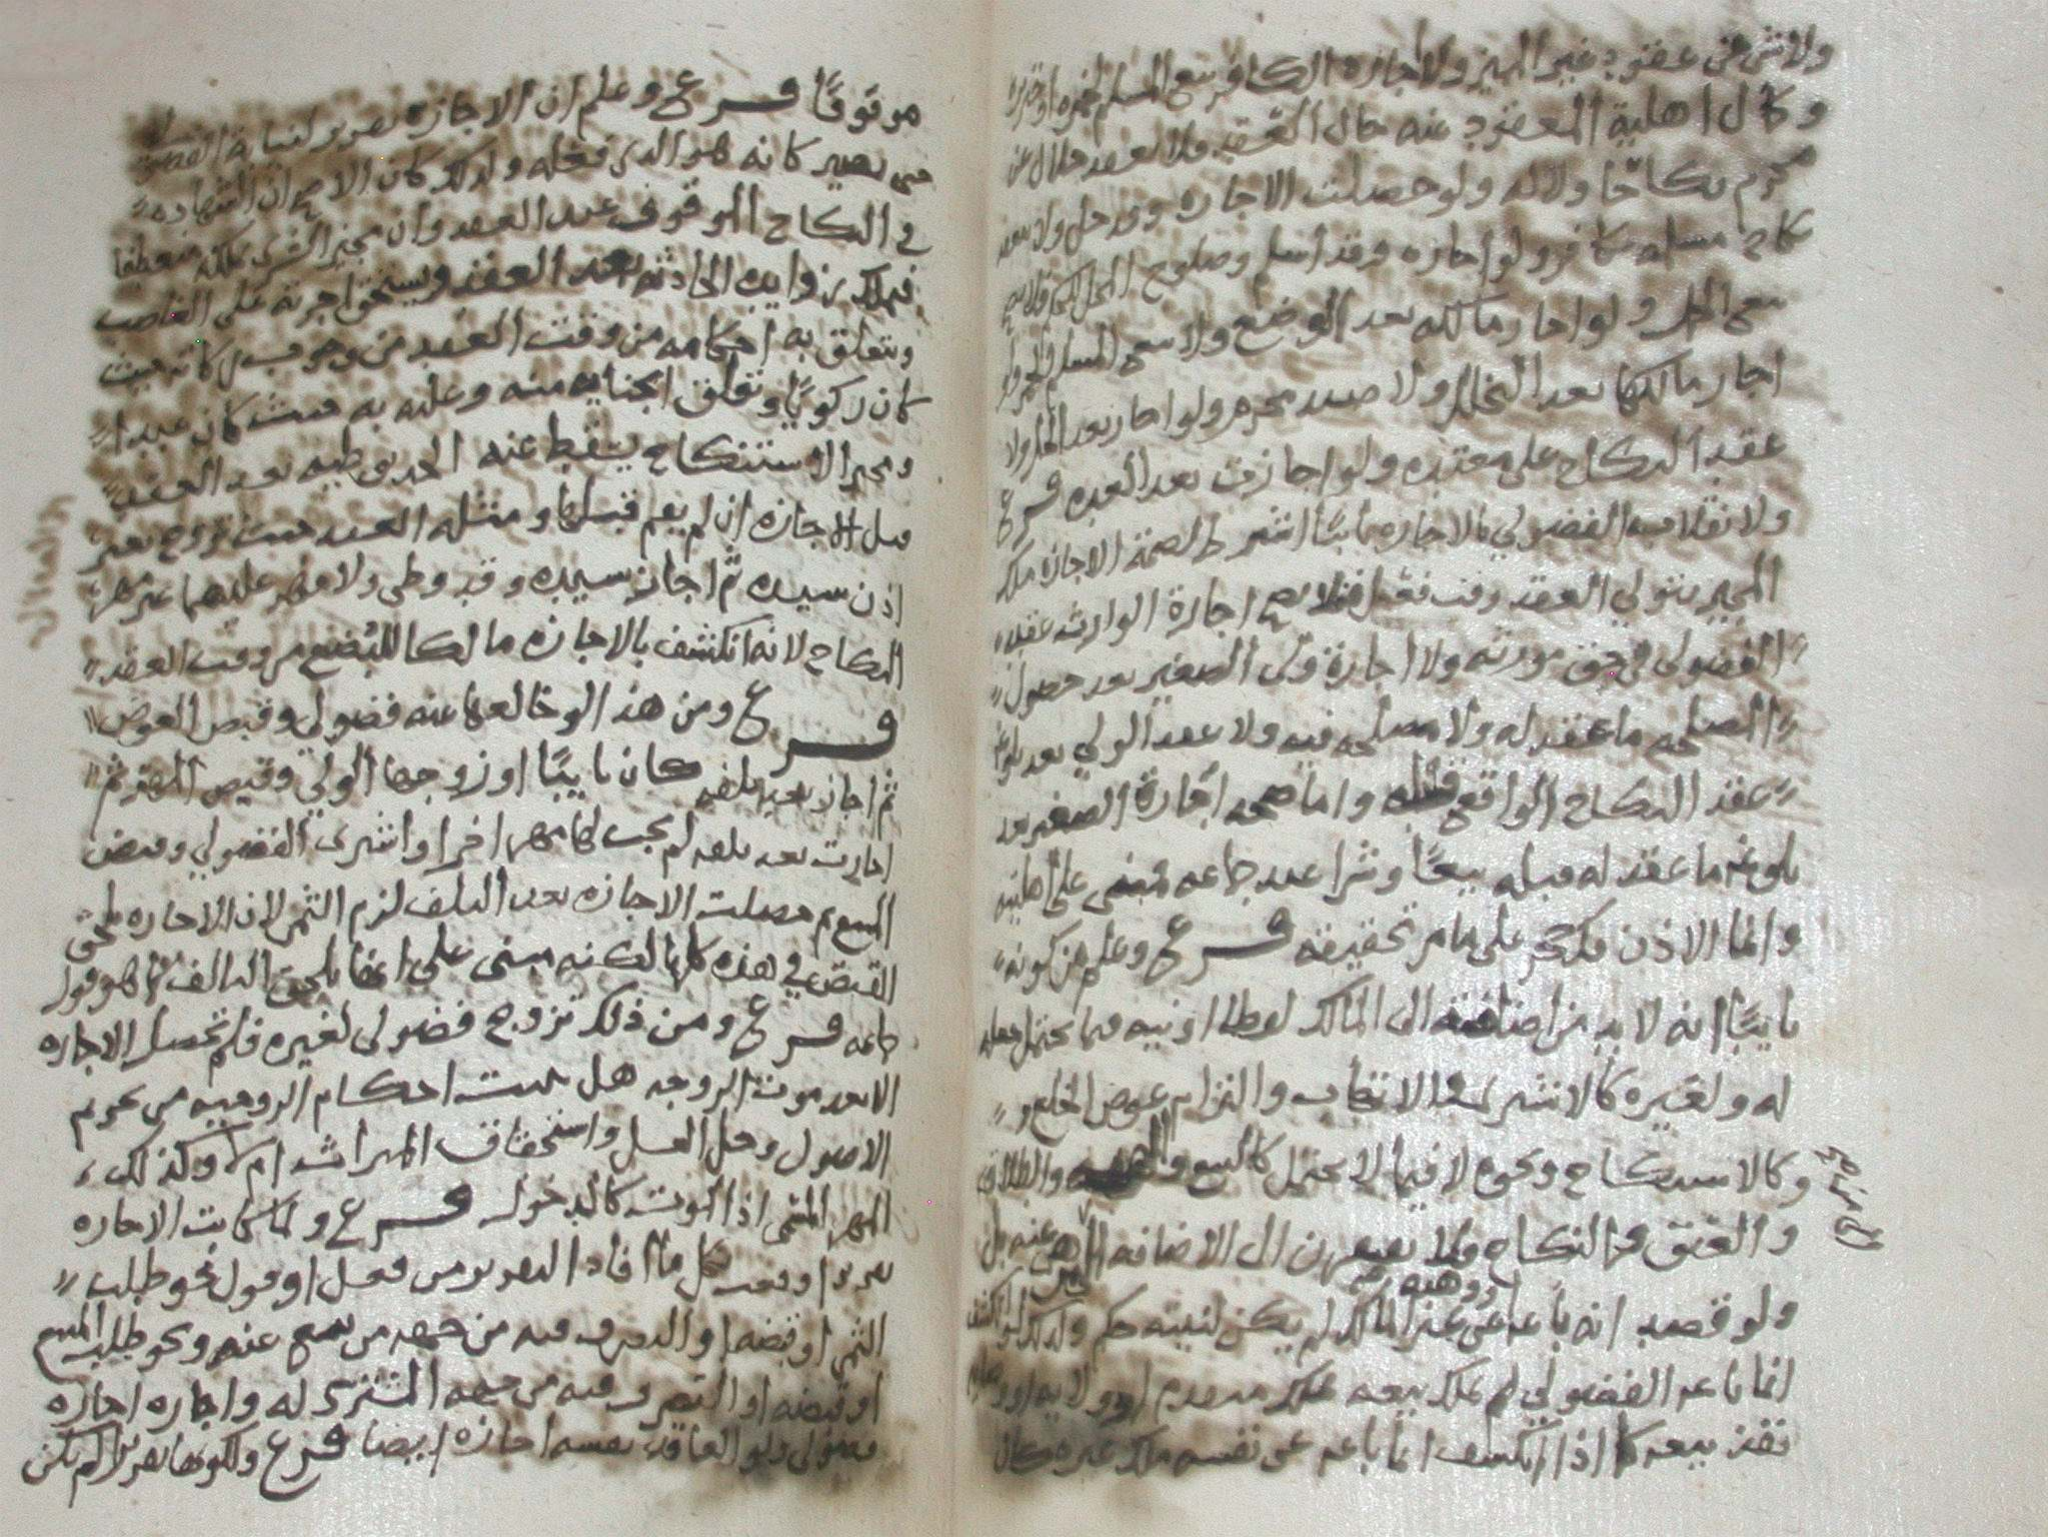 ولا من في عقود غير المميز ولا اجازه الكافر بيع المسلم لخمره او خنزيره
وكمال اهلية المعقود عنه حال العقد فلا يعقد حلال عن
محرم نكاحًا ولا له ولو حصلت الاجازه وقد حل ولا يعقد
نكاح مسلمه كافر ولو اجازه وقد اسلم وصلوح المحل لحكم فلا يصح
بيع الحمل ولو اجاز مالكه بعد الوضع ولا بيع المسلم الخمر ولو
اجاز مالكها بعد التخلل ولا صيد محرم ولو اجاز بعد الحل ولا
عقد النكاح على معتده ولو اجازت بعد العده فرع
ولانقلاب الفضولي بالاجازه نايبًا اشترط لصحة الاجازه ملك
المجيز بتولي العقد وقت فلا يصح اجازة الوارث عقد
الفضولي في حق مورثه ولا اجازة ولي الصغير بعد حصول
المصلحه ما عقد له ولا مصلحه فيه ولا عقد الولي بعد بلوغه
عقد النكاح الواقع قبله واما صحه اجازة الصغير بعد
بلوغه ما عقد له قبله بيعًا وشرا عند جماعه فمبني على اهليته
وانما الاذن فك حجر على ما مر تحقيقه فرع وعلم من كونه
نايبًا انه لا بد من اضافته الى المالك لفظا او نيه فيما يحتمل فعله
له ولغيره كالاشتراء والاتهاب والتزام عوض الخلع و
وكالاستنكاح ونحوه لا فيما لا يحتمل كالبيع والهبه والطلاق
والعتق والنكاح فلا يفتقرن الى الاضافه الى عنه بل
ولو قصد انه باعه عن غير المالك لم يكن لنيته حكم ولذلك لو انكشف
انما باعه الفضولي لم يملك بيعه بملك متقدم او ولايه او
نفذ بيعه كما اذا انكشف انما باعه عن نفسه ملك غيره كان
موقوفًا فرع وعلم ان الاجازه تقرير لنيابة الفضولي
حتى يصير كانه هو الذي فعله ولذلك كان الاصح ان الشهاده
في النكاح الموقوف عند العقد وان مجيز الشرى يملكه منعطفا
فيملك زوايده الحادثه بعد العقد ويستحق اجرته على الغاصب
وتتعلق به احكامه من وقت العقد من وجوب زكاته حيث
كان زكويًا وتعلق الجنايه منه وعليه به حيث كان عبدا
ومجيز الاستنكاح يسقط عنه الحد بوطيه بعد العقد
قبل الاجازه ان لم يعم قبلها ومثله العبد حيث تزوج بغير
اذن سيده ثم اجاز سيده وقد وطي ولا مهر عليهما غير مهر
النكاح لانه انكشف بالاجازه مالكا للبضع من وقت العقد
فرع ومن هذا لو خالعها عنه فضولي وقبض العوض
ثم اجاز بعد تلفه كان نايبًا او زوجها الولي وقبض المهر ثم
اجازت بعد تلفه لم يجب لها مهرا اخر او اشترى الفضولي وقبض
المبيع ثم حصلت الاجازه بعد التلف لزم الثمن لان الاجازه تلحق
القبض في هذه كلها لكنه مبني على انها تلحق التالف كما هو قول
جماعه فرع ومن ذلك تزوج فضولي لغيره فلم تحصل الاجازه
الا بعد موت الزوجه هل تثبت احكام الزوجيه من تحريم
الاصول وحل الغسل واستحقاق الميراث ام لا وكذلك
المهر المسمى اذ الموت كالدخول فرع ولما كانت الاجازه
تقريرا وقعت بكل ما افاد التقرير من فعل او قول نحو طلب
الثمن او قبضه او التصرف فيه من جهه من بيع عنه ونحو طلب المبيع
او قبضه او التصرف فيه من جهه المشترى له واجازه اجازه
فضولي ولو العاقد نفسه اجازه ايضا فرع ولكونها تقريرا لم تكن